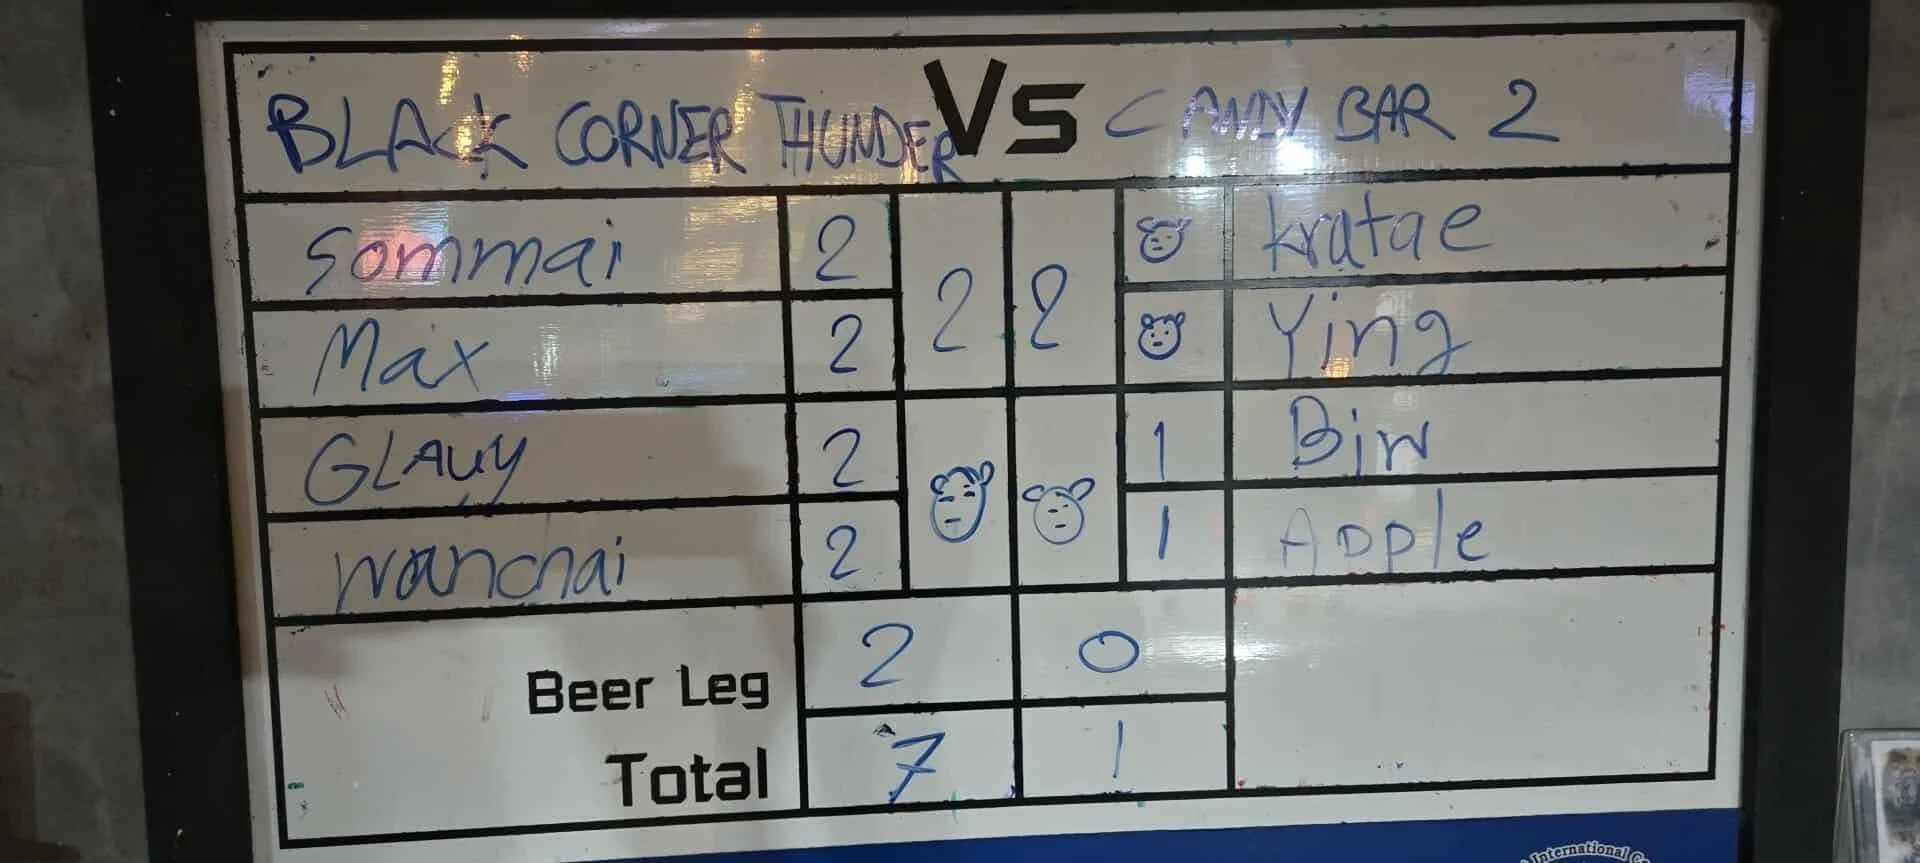 BLACK CORNER THUNDER Vs CANDY BAR 2
Sommai 2 2 2 kratae
Max 2 Ying
GLAUY 2 1 Biw
wanchai 2 1 Apple
Beer Leg 2 0
Total 7 1
International